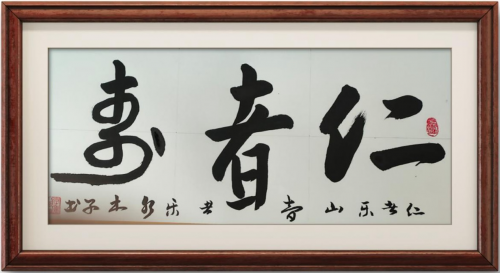 仁者寿
仁者乐山 者乐水 木子书